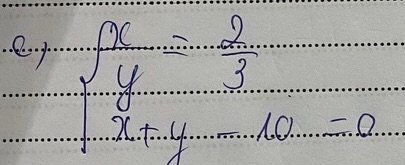 c, { x/y = 2/3
x + y - 10 = 0